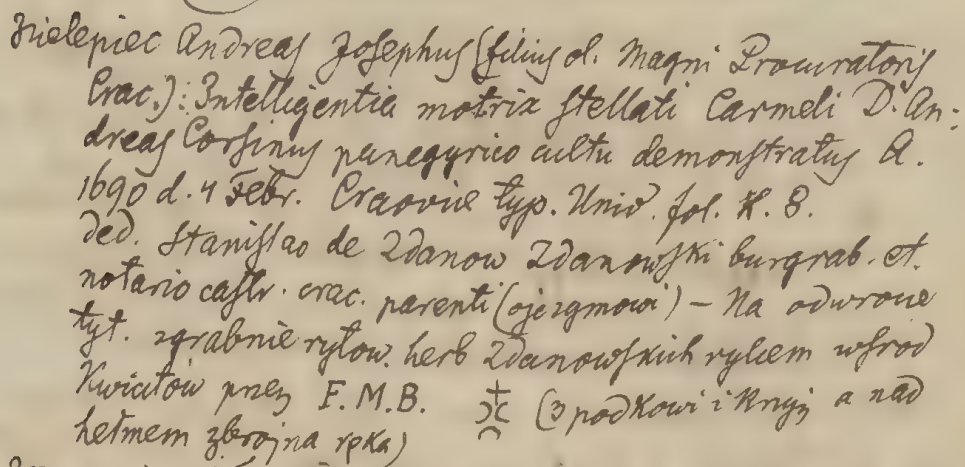 Kielepiec Andreas Josephus (filius ol. Magni Procuratoris
Crac.): Intelligentia motrix stellati Carmeli D. An-
dreas Corsinus panegyrico cultu demonstratus A.
1690 d. 4 Febr. Cracoviae typ. Univ. fol. K. 8.
Ded. Stanislao de Zdanow Zdanowski burgrab. et.
notario castr. crac. parenti (ojczymowi) – Na odwrocie
tyt. zgrabnie rytow. herb Zdanowskich rylcem wśrod
Kwiatów przez F. M. B. (3 podkowi i Krzyż a nad
hełmem zbrojna ręka)